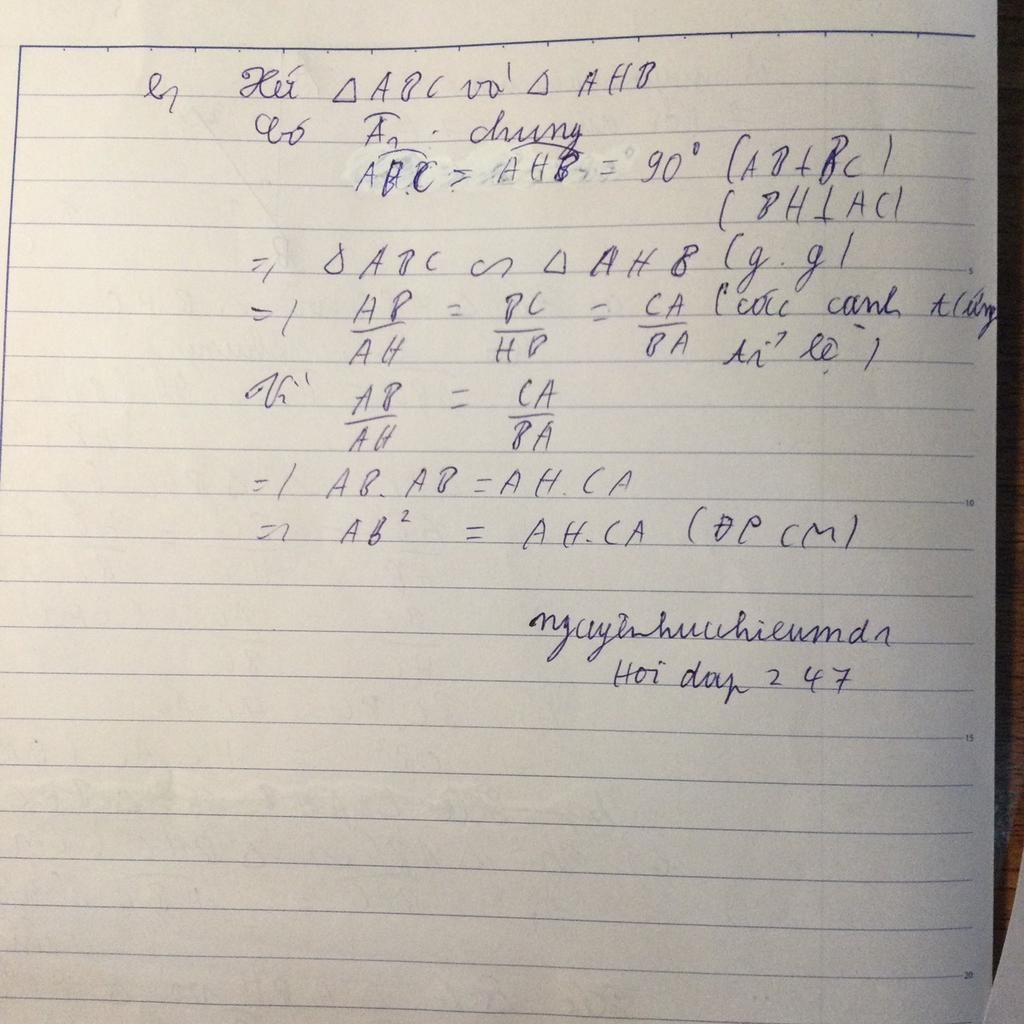 b, Xét Δ ABC và Δ AHB
Có Â₁ : chung
ABC = AHB = 90° (AB⊥BC)
(BH⊥AC)
=> Δ ABC ∽ Δ AHB (g.g)
=> AB/AH = BC/HB = CA/BA (các cạnh t/ứng
tỉ lệ)
Vì AB/AH = CA/BA
=> AB.AB = AH.CA
=> AB² = AH.CA (ĐPCM)
nguyễnhuuhieumdn
Hoi dap 247
5
10
15
20